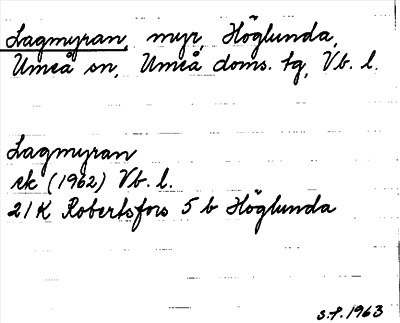 Lagmyran, myr, Höglunda,
Umeå sn, Umeå doms. tg, Vb. l.
Lagmyran
ek (1962) Vb. l.
21K Robertsfors 5 b Höglunda
S.P. 1963